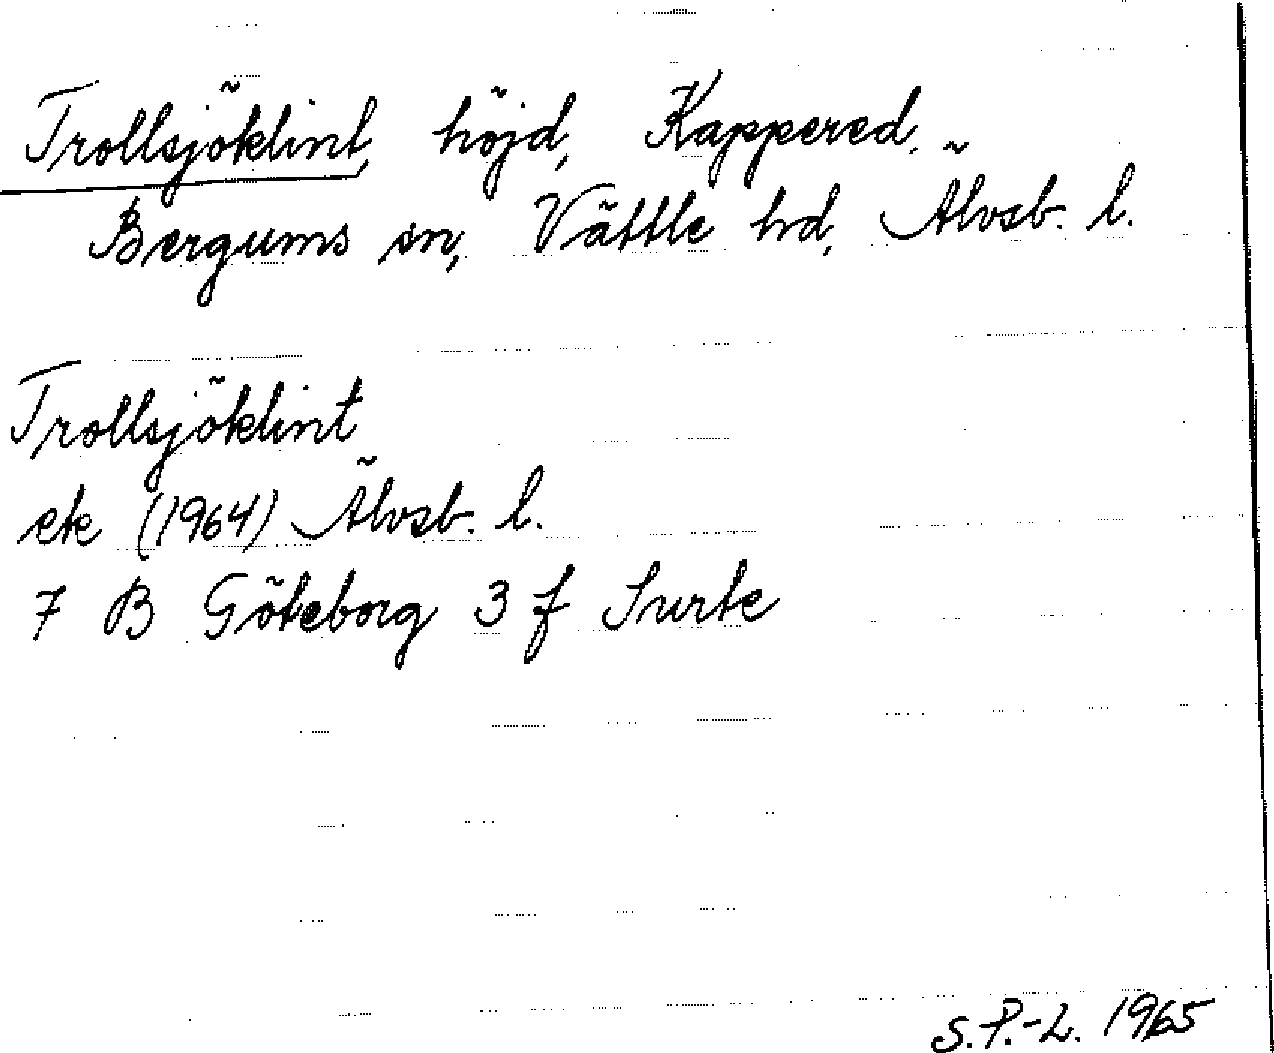 Trollsjöklint, höjd, Kappered,
Bergums sn, Vättle hd, Älvsb. l.
Trollsjöklint
ek (1964) Älvsb. l.
7 B Göteborg 3 f Surte
S.P.-L. 1965